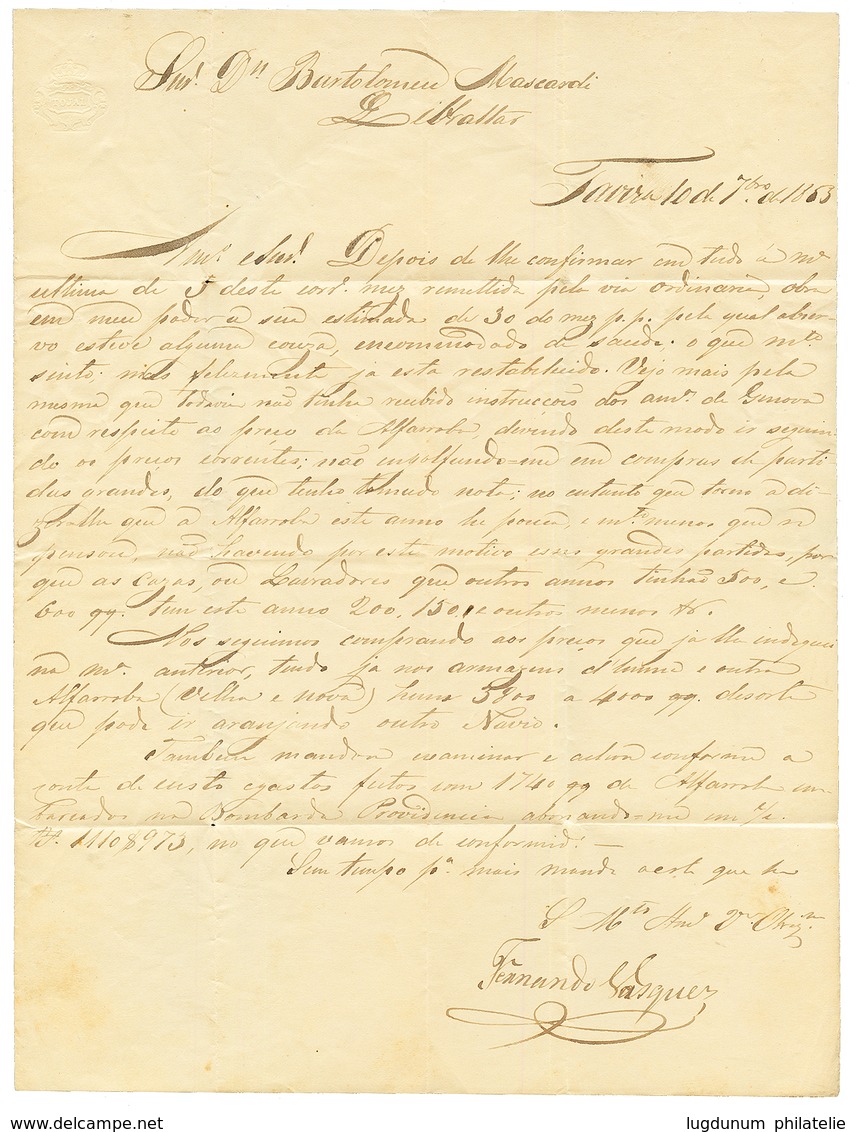 Snr. Dn Bartolomeu Mascardi
Gibraltar
Tavira 10 de 7bro. de 1853
Amo. e Snr. Depois de lhe confirmar em tudo á mª
ultima de 5 deste corre. mez remettida pela via ordinaria, obra
em meu poder a sua estimada de 30 do mez p.p. pela qual obser-
vo esteve alguma couza, encommodado de saude: o que mto.
sinto; mas felizmente ja esta restabelecido. Vejo mais pela
mesma que todavia não tinha recebido instrucções dos amos. de Genova
com respeito ao preço da Alfarroba, devendo deste modo ir seguin-
do os preços correntes; não engolfando-me em compras de parti
das grandes, do que tenho tomado nota; no entanto que torno a di-
zer a Alfarroba este anno he pouca, e mto. menos que se
pensava, não havendo por este motivo essas grandes partidas, por
que as cazas, ou Lavradores que outros annos tinhão 500, e
600 qq. tem este anno 200, 150, e outros menos &c.
Nós seguimos comprando aos preços que ja lhe indiquei
na mª. anterior, tendo ja nos armazens d'huma e outra
Alfarroba (velha e nova) huns 3800 a 4000 qq. desorte
que pode ir aranjando outro Navio.
Tambem mandou examinar e achou conforme a
conta de custo e gastos feitos com 1740 qq de Alfarroba em-
barcados na Bombarda Providencia abonando-me em c/c.
1110$973, no que vamos de conformide. —
Sem tempo pª. mais manda a este que he
S Mto Amo Vor. Obrigdo.
Fernando Vasquez
delcampe.net
lugdunum philatelie